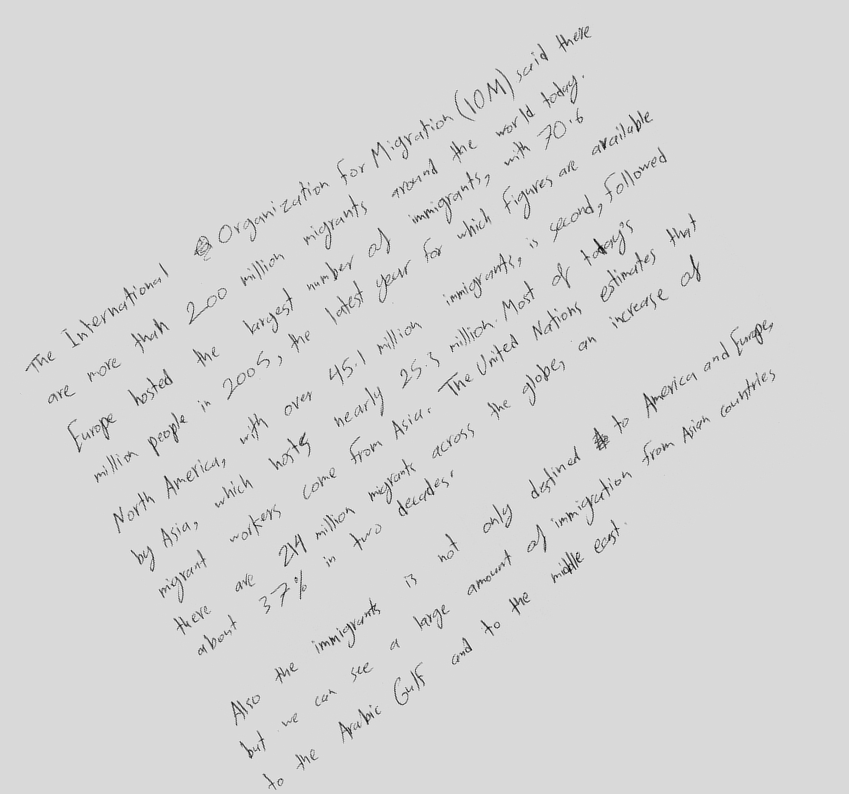 The International Organization for Migration (IOM) said there
are more than 200 million migrants around the world today.
Europe hosted the largest number of immigrants, with 70.6
million people in 2005, the latest year for which figures are available
North America, with over 45.1 million immigrants, is second, followed
by Asia, which hosts nearly 25.3 million. Most of today's
migrant workers come from Asia. The United Nations estimates that
there are 214 million migrants across the globe, an increase of
about 37% in two decades.
Also the immigrants is not only destined to America and Europe,
but we can see a large amount of immigration from Asian countries
to the Arabic Gulf and to the middle east.